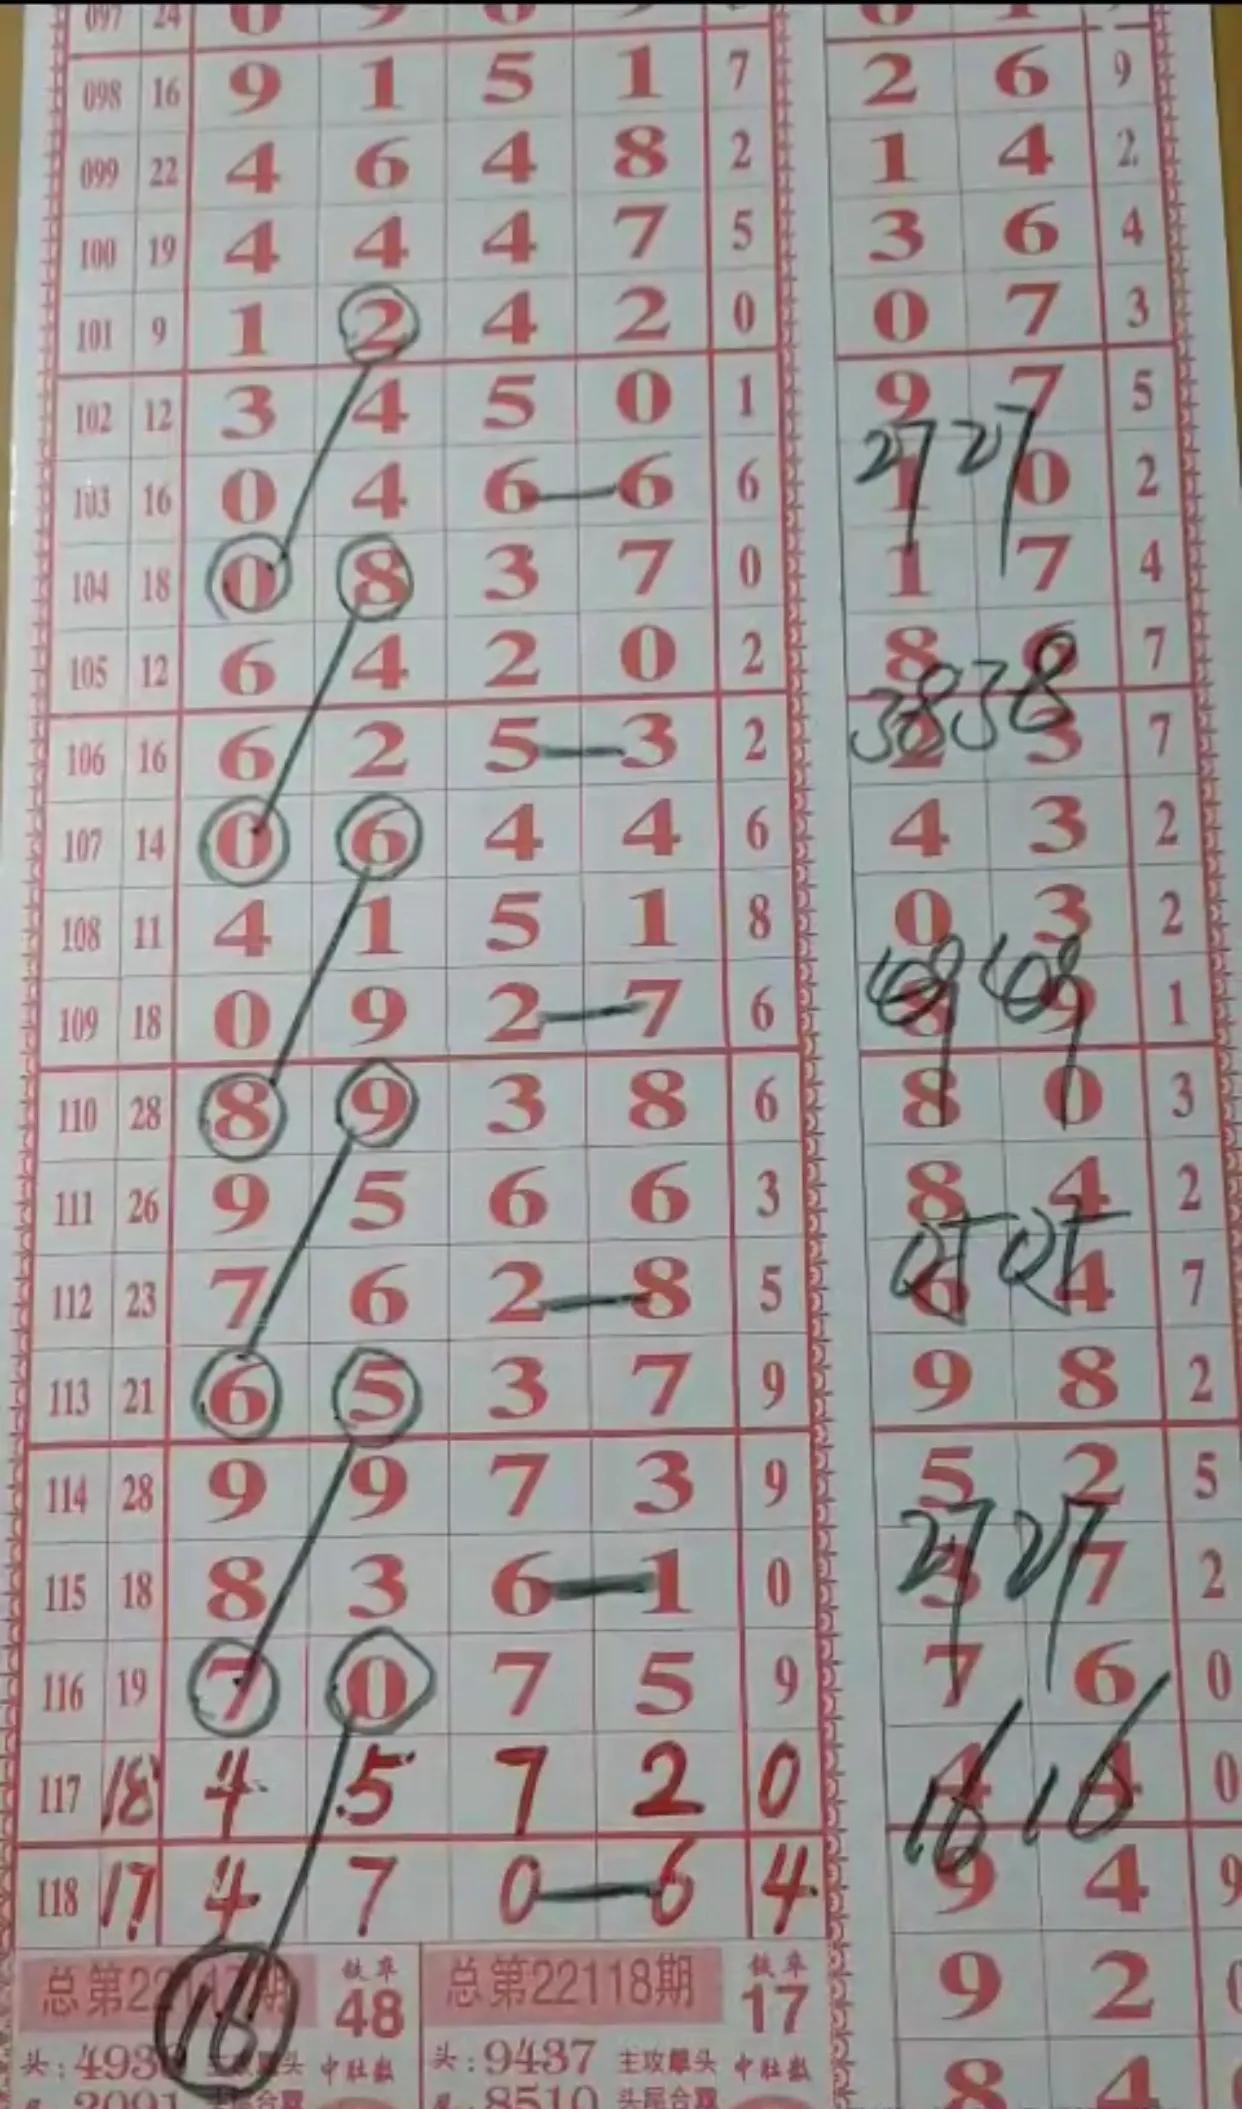 097 24 0 9 0 9
098 16 9 1 5 1 7 2 6 9
099 22 4 6 4 8 2 1 4 2
100 19 4 4 4 7 5 3 6 4
101 9 1 2 4 2 0 0 7 3
102 12 3 4 5 0 1 9 7 5
27 27
103 16 0 4 6 6 6 1 0 2
104 18 0 8 3 7 0 1 7 4
105 12 6 4 2 0 2 8 6 7
38 38
106 16 6 2 5 3 2 2 3 7
107 14 0 6 4 4 6 4 3 2
108 11 4 1 5 1 8 0 3 2
49 49
109 18 0 9 2 7 6 8 9 1
110 28 8 9 3 8 6 8 0 3
111 26 9 5 6 6 3 8 4 2
05 05
112 23 7 6 2 8 5 6 4 7
113 21 6 5 3 7 9 9 8 2
114 28 9 9 7 3 9 5 2 5
27 27
115 18 8 3 6 1 0 3 7 2
116 19 7 0 7 5 9 7 6 0
117 18 4 5 7 2 0 4 4 0
16 16
118 17 4 7 0 6 4 9 4 9
总第22117期 48 总第22118期 17 9 2
16
头:493 主攻 头 中肚数 头:9437 主攻 头 中肚数 8 4
2091 头尾合 8510 头尾合